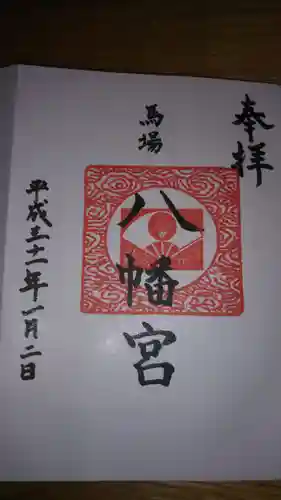 奉拝
馬場
八幡宮
平成三十一年一月二日